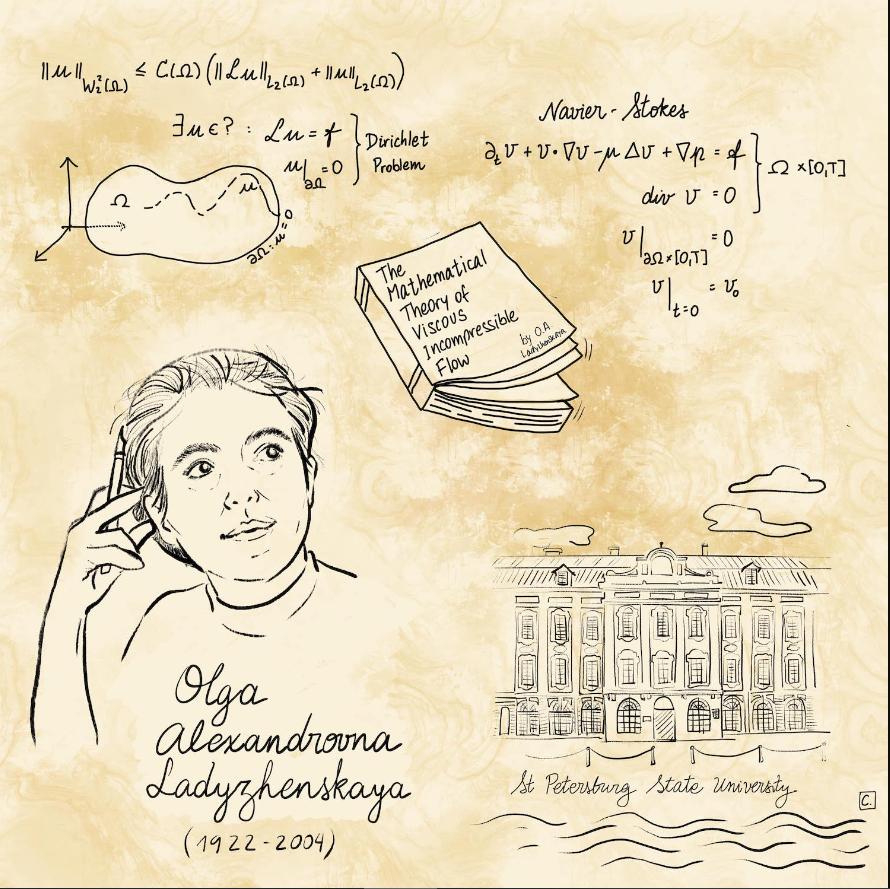 ‖u‖W₂²(Ω) ≤ C(Ω) (‖ℒu‖L₂(Ω) + ‖u‖L₂(Ω))
∃u∈? : ℒu = f
u|∂Ω = 0
Dirichlet
Problem
Ω
u
∂Ω: u=0
Navier-Stokes
∂ₜv + v·∇v - μΔv + ∇p = f
div v = 0
Ω ×[0,T]
v|∂Ω×[0,T] = 0
v|t=0 = v₀
The
Mathematical
Theory of
Viscous
Incompressible
Flow
by O.A
Ladyzhenskaya
Olga
Alexandrovna
Ladyzhenskaya
(1922-2004)
St Petersburg State University
C.